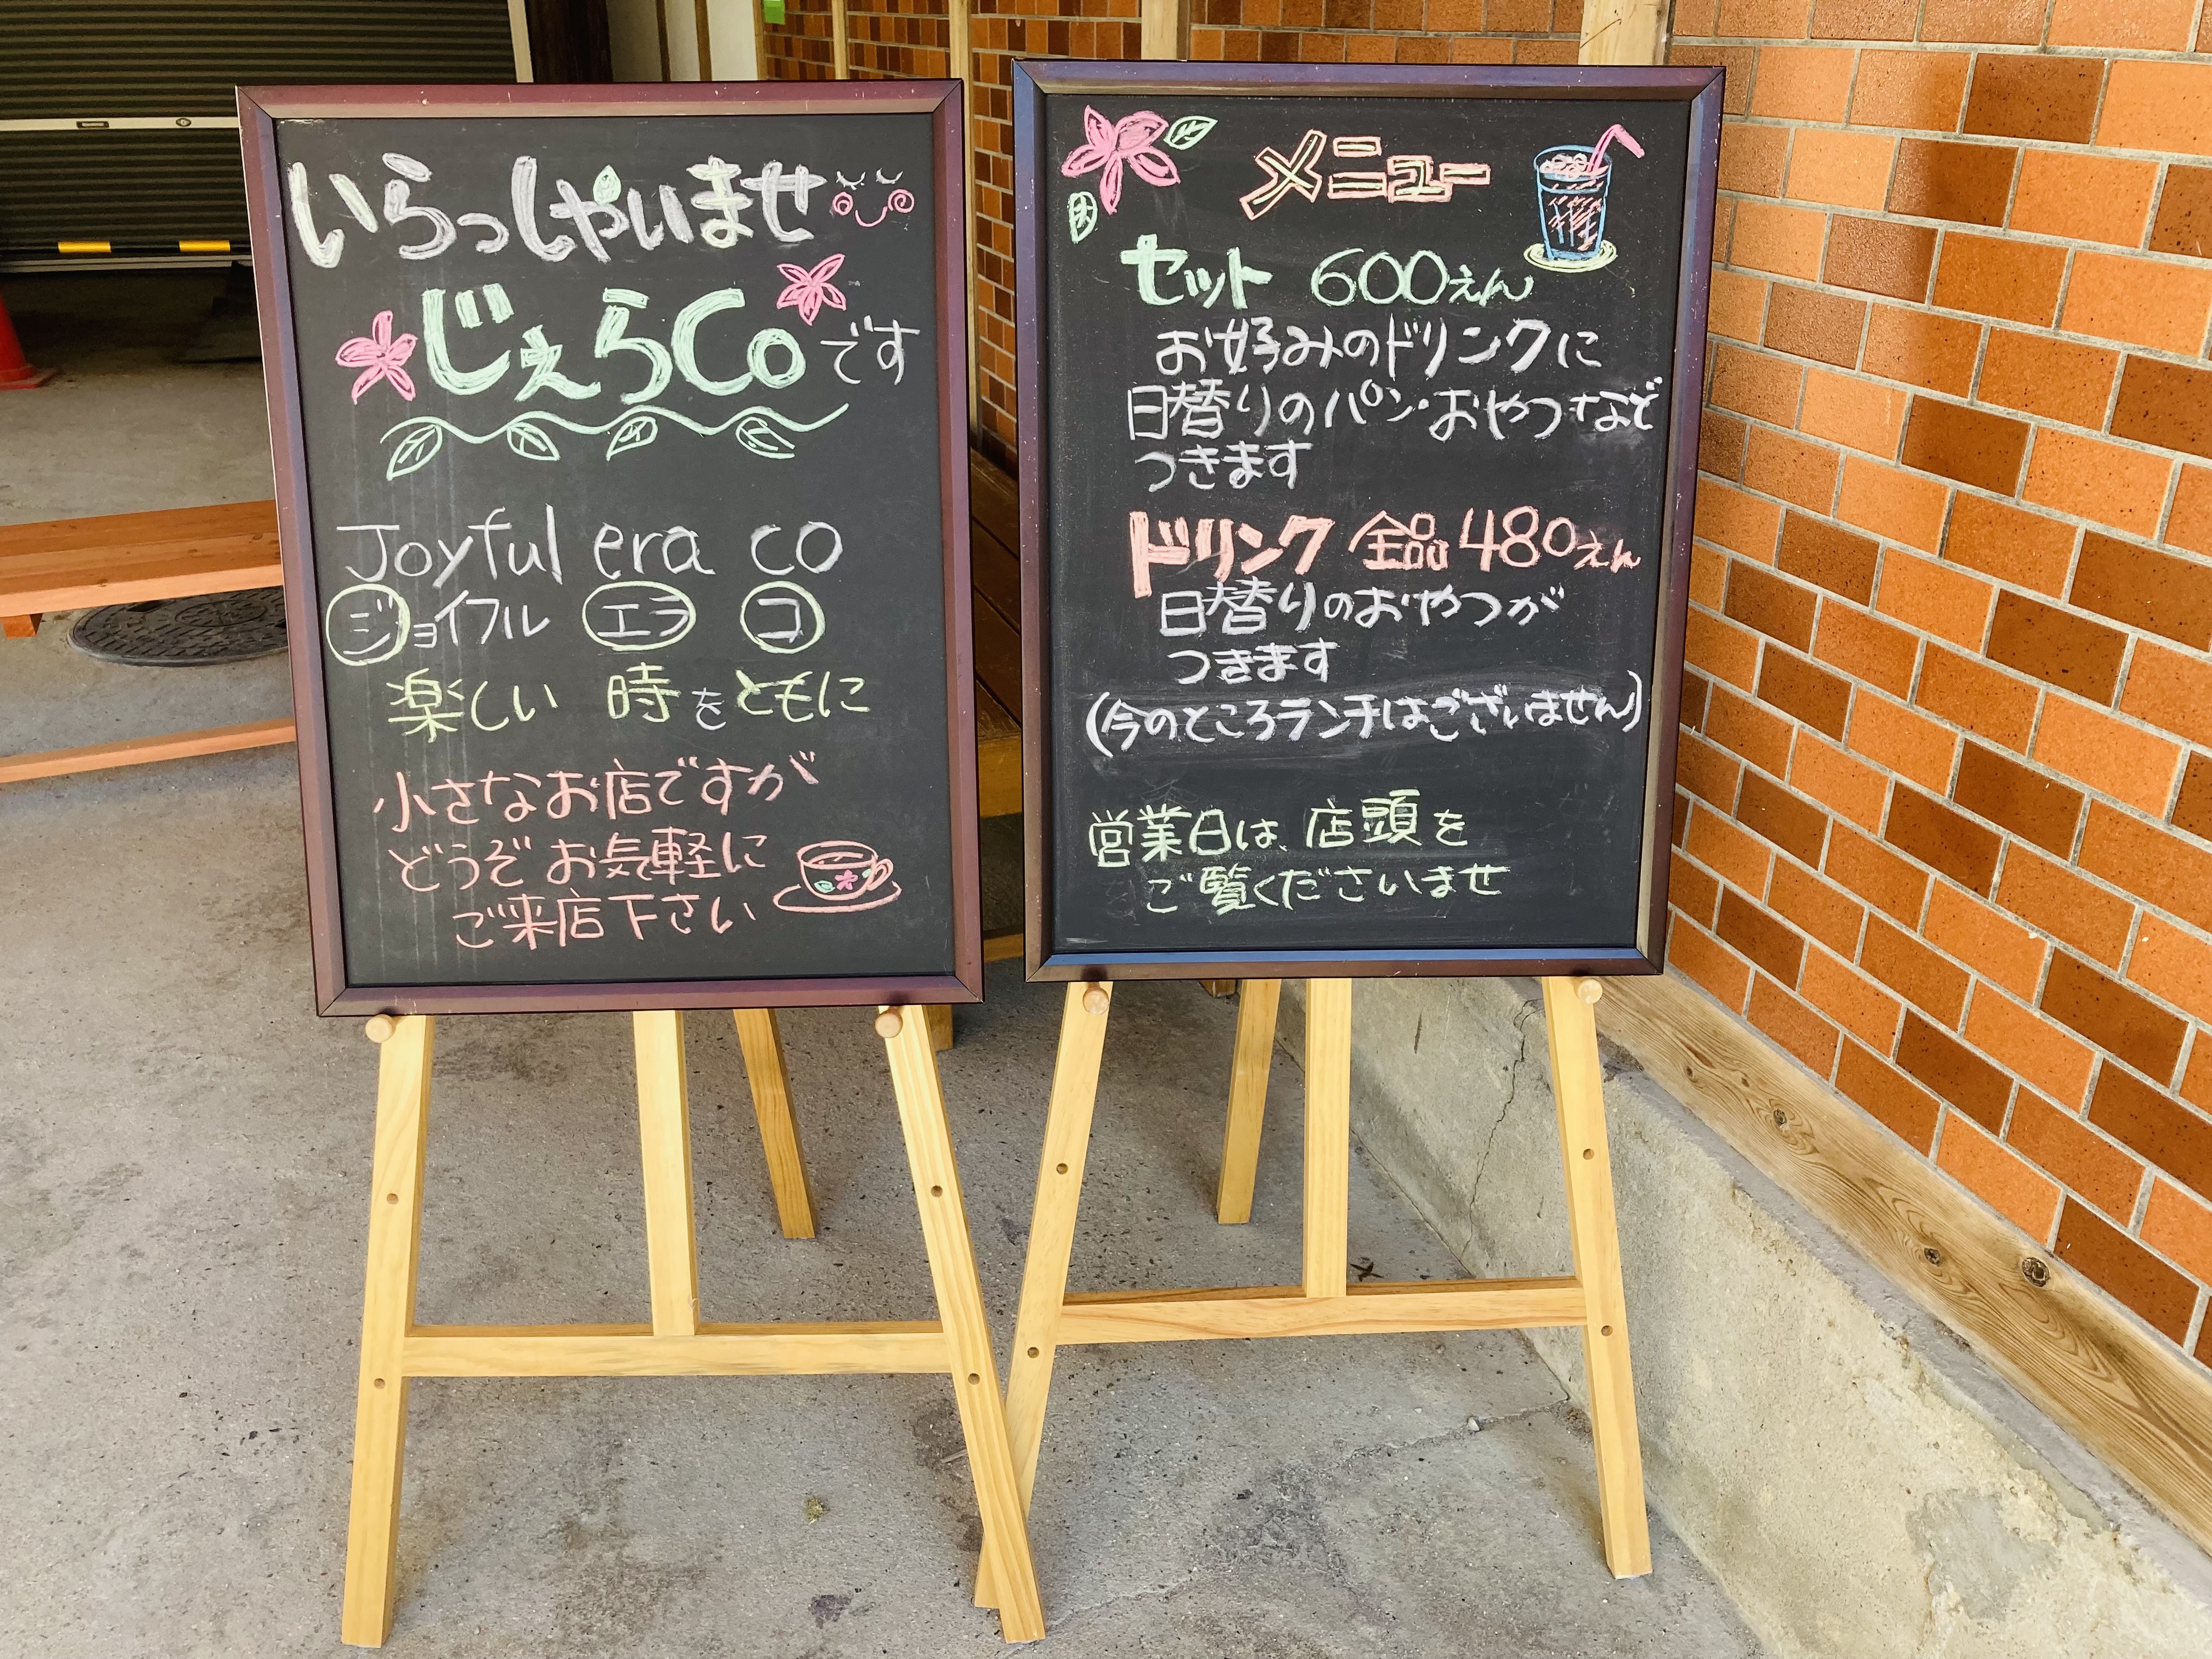 いらっしゃいませ
じぇらCoです
Joyful era co
ジョイフル エラ コ
楽しい 時をともに
小さなお店ですが
どうぞお気軽に
ご来店下さい
メニュー
セット 600えん
お好みのドリンクに
日替りのパン・おやつなど
つきます
ドリンク 全品480えん
日替りのおやつが
つきます
(今のところランチはございません)
営業日は、店頭を
ご覧くださいませ